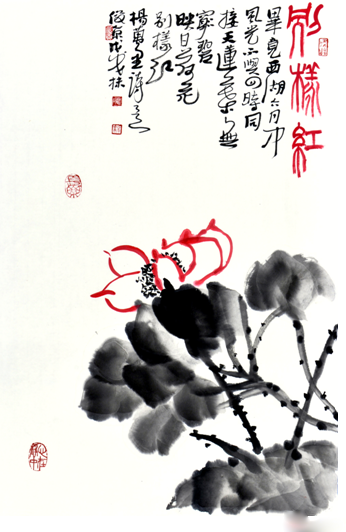 别樣紅
畢竟西湖六月中
風光不與四時同
接天蓮葉無
窮碧
映日荷花
别樣紅
楊萬里詩意